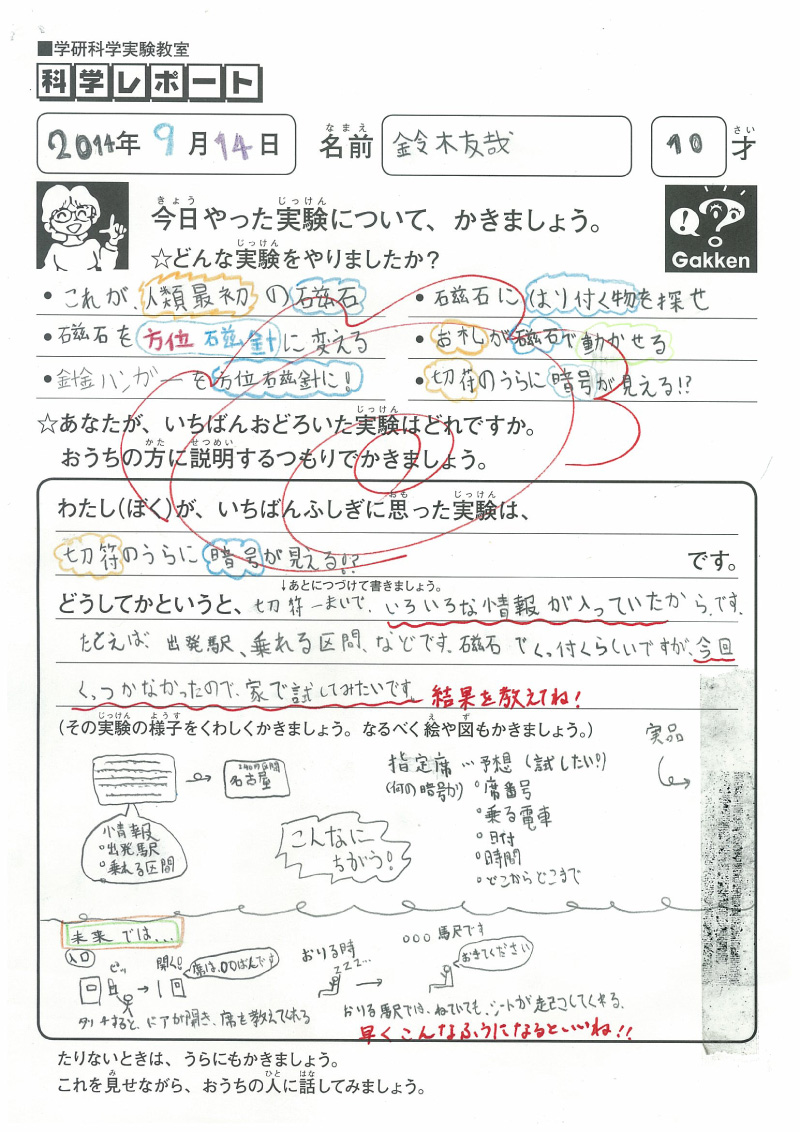 ■学研科学実験教室
科学レポート
2014年 9月14日
なまえ
名前 鈴木友哉
さい
10才
きょう じっけん
今日やった実験について、かきましょう。
じっけん
☆どんな実験をやりましたか？
Gakken
• これが、人類最初の磁石
• 磁石を方位磁針に変える
• 針金ハンガーを方位磁針に！
• 磁石にはり付く物を探せ
• お札が磁石で動かせる
• 切符のうらに暗号が見える!?
じっけん
☆あなたが、いちばんおどろいた実験はどれですか。
かた せつめい
おうちの方に説明するつもりでかきましょう。
おも じっけん
わたし（ぼく）が、いちばんふしぎに思った実験は、
切符のうらに暗号が見える!? です。
↓あとにつづけて書きましょう。
どうしてかというと、切符一まいで、いろいろな情報が入っていたからです。
たとえば、出発駅、乗れる区間、などです。磁石でくっ付くらしいですが、今回
くっつかなかったので、家で試してみたいです。結果を教えてね！
じっけん ようす え ず
（その実験の様子をくわしくかきましょう。なるべく絵や図もかきましょう。）
実品
名古屋
情報
•出発駅
•乗れる区間
こんなに
ちがう！
指定席…予想（試したい!）
（何の暗号か）
•席番号
•乗る電車
•日付
•時間
•どこからどこまで
未来では…
入口
ピッ
開く!
席は、〇〇ばんです
タッチすると、ドアが開き、席を教えてくれる
おりる時
ZZZ…
〇〇〇駅です
おきてください
おりる駅では、ねていても、シートが起こしてくれる。
早くこんなふうになるといいね!!
たりないときは、うらにもかきましょう。
み ひと はな
これを見せながら、おうちの人に話してみましょう。